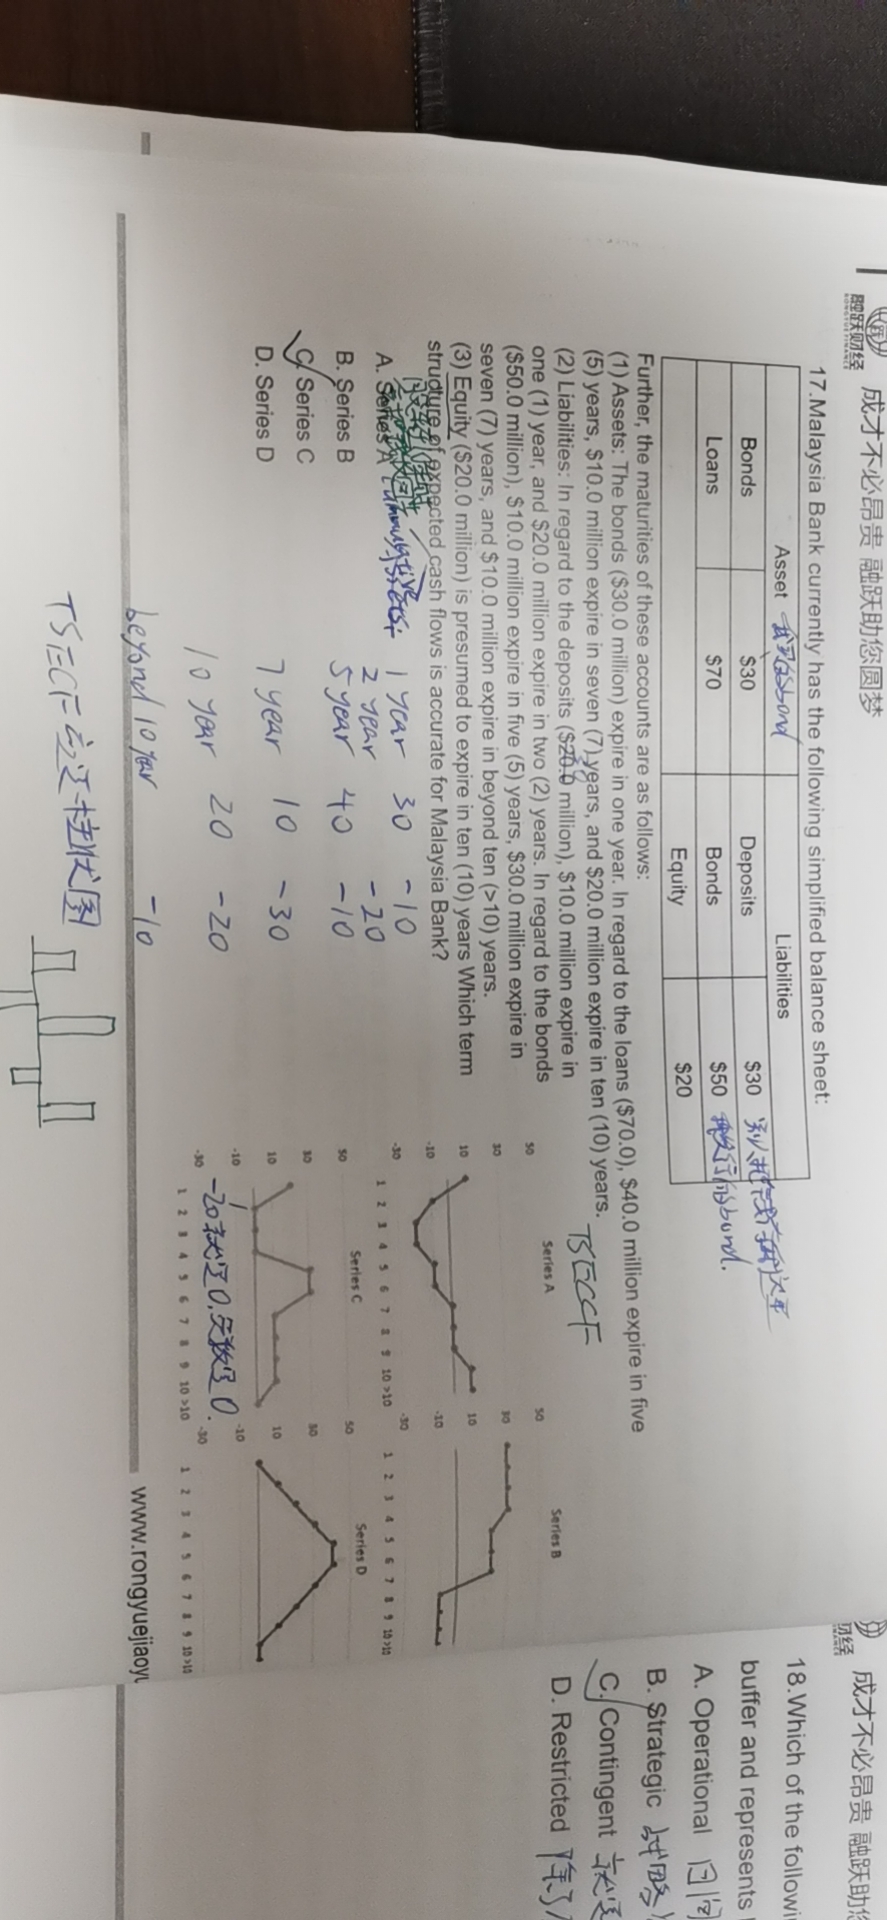 融跃财经
RONGYUE FINANCE
成才不必昂贵 融跃助您圆梦
17.Malaysia Bank currently has the following simplified balance sheet:
Asset Liabilities
Bonds $30 Deposits $30
Loans $70 Bonds $50
Equity $20
bond
bond.
Further, the maturities of these accounts are as follows:
(1) Assets: The bonds ($30.0 million) expire in one year. In regard to the loans ($70.0), $40.0 million expire in five
(5) years, $10.0 million expire in seven (7) years, and $20.0 million expire in ten (10) years.
(2) Liabilities: In regard to the deposits ($20.0 million), $10.0 million expire in
one (1) year, and $20.0 million expire in two (2) years. In regard to the bonds
($50.0 million), $10.0 million expire in five (5) years, $30.0 million expire in
seven (7) years, and $10.0 million expire in beyond ten (>10) years.
(3) Equity ($20.0 million) is presumed to expire in ten (10) years Which term
structure of expected cash flows is accurate for Malaysia Bank?
TSECCF
A. Series A
B. Series B
C. Series C
D. Series D
1 year 30 -10
2 year -20
5 year 40 -10
7 year 10 -30
10 year 20 -20
beyond 10 year -10
TSECF 柱状图
Series A
50
30
10
-10
-30
1 2 3 4 5 6 7 8 9 10 >10
Series B
50
30
10
-10
-30
1 2 3 4 5 6 7 8 9 10 >10
Series C
50
30
10
-10
-30
1 2 3 4 5 6 7 8 9 10 >10
Series D
50
30
10
-10
-30
1 2 3 4 5 6 7 8 9 10 >10
www.rongyuejiaoyu
财经
成才不必昂贵 融跃助您
18.Which of the followi
buffer and represents
A. Operational
B. Strategic
C. Contingent
D. Restricted